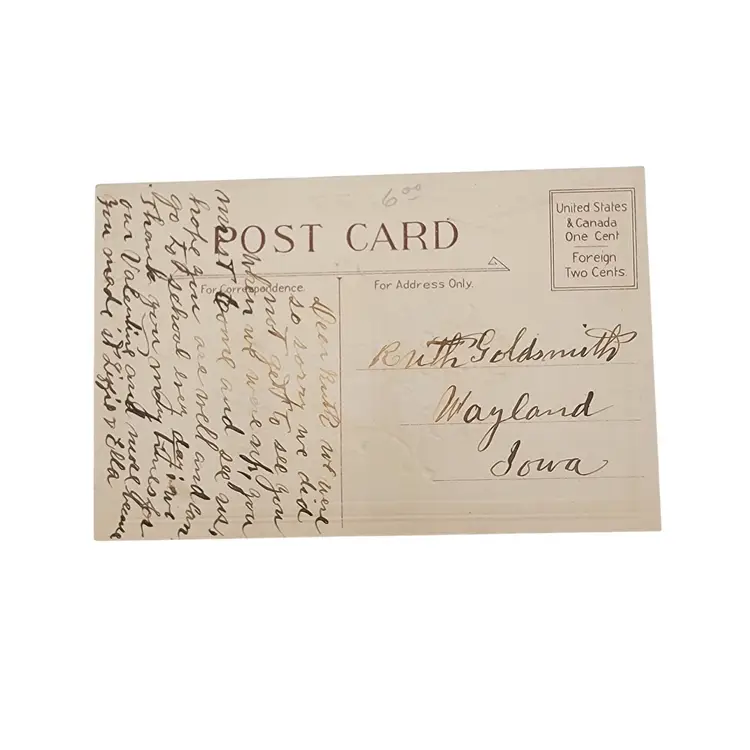 6 00
POST CARD
United States
& Canada
One Cent
Foreign
Two Cents.
For Correspondence.
For Address Only.
Ruth Goldsmith
Wayland
Iowa
Dear Ruth we were
so sorry we did
not get to see you
when we were up, you
must come and see us,
hope you are well and can
go to school every day we
thank you many times for
our Valentine and more
you made it Lizzie & Ella